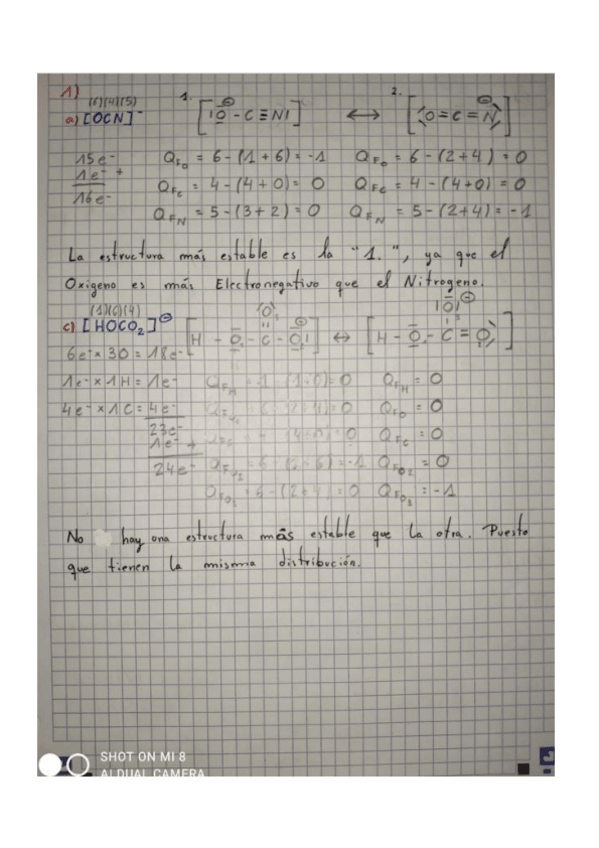 1)
(6)(4)(5)
a) [OCN]⁻ 1. [|O̲⊖ - C ≡ N|] ↔ 2. [O = C = N⊖]
15e⁻ Q_FO = 6-(1+6) = -1 Q_FO = 6-(2+4) = 0
1e⁻ + Q_FC = 4-(4+0) = 0 Q_FC = 4-(4+0) = 0
16e⁻ Q_FN = 5-(3+2) = 0 Q_FN = 5-(2+4) = -1
La estructura más estable es la "1.", ya que el
Oxigeno es más Electronegativo que el Nitrogeno.
(1)(6)(4)
c) [HOCO₂]⊖ [H - O - C - O|⊖ (O)] ↔ [H - O - C = O (|O|⊖)]
6e⁻ x 3O = 18e⁻
1e⁻ x 1H = 1e⁻ Q_FH = 1-(1+0) = 0 Q_FH = 0
4e⁻ x 1C = 4e⁻ = 0 Q_FO = 0
23e⁻ = 0 Q_FC = 0
1e⁻ +
24e⁻ Q_FO2 = 6-(2+6) = -1 Q_FO2 = 0
Q_FO3 = 6-(2+4) = 0 Q_FO3 = -1
No hay una estructura más estable que la otra. Puesto
que tienen la misma distribución.
SHOT ON MI 8
AI DUAL CAMERA